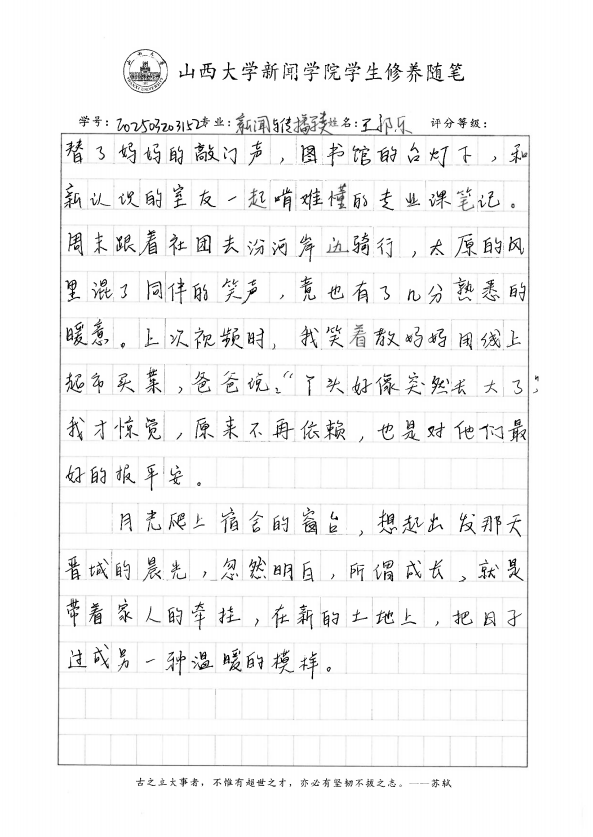 山西大学新闻学院学生修养随笔
学号：202503203152专业：新闻与传播学类姓名：王郁乐 评分等级：
替了妈妈的敲门声，图书馆的台灯下，和
新认识的室友一起啃难懂的专业课笔记。
周末跟着社团去汾河岸边骑行，太原的风
里混了同伴的笑声，竟也有了几分熟悉的
暖意。上次视频时，我笑着教妈妈用线上
超市买菜，爸爸说：“丫头好像突然长大了”，
我才惊觉，原来不再依赖，也是对他们最
好的报平安。
月光爬上宿舍的窗台，想起出发那天
晋城的晨光，忽然明白，所谓成长，就是
带着家人的牵挂，在新的土地上，把日子
过成另一种温暖的模样。
古之立大事者，不惟有超世之才，亦必有坚韧不拔之志。——苏轼